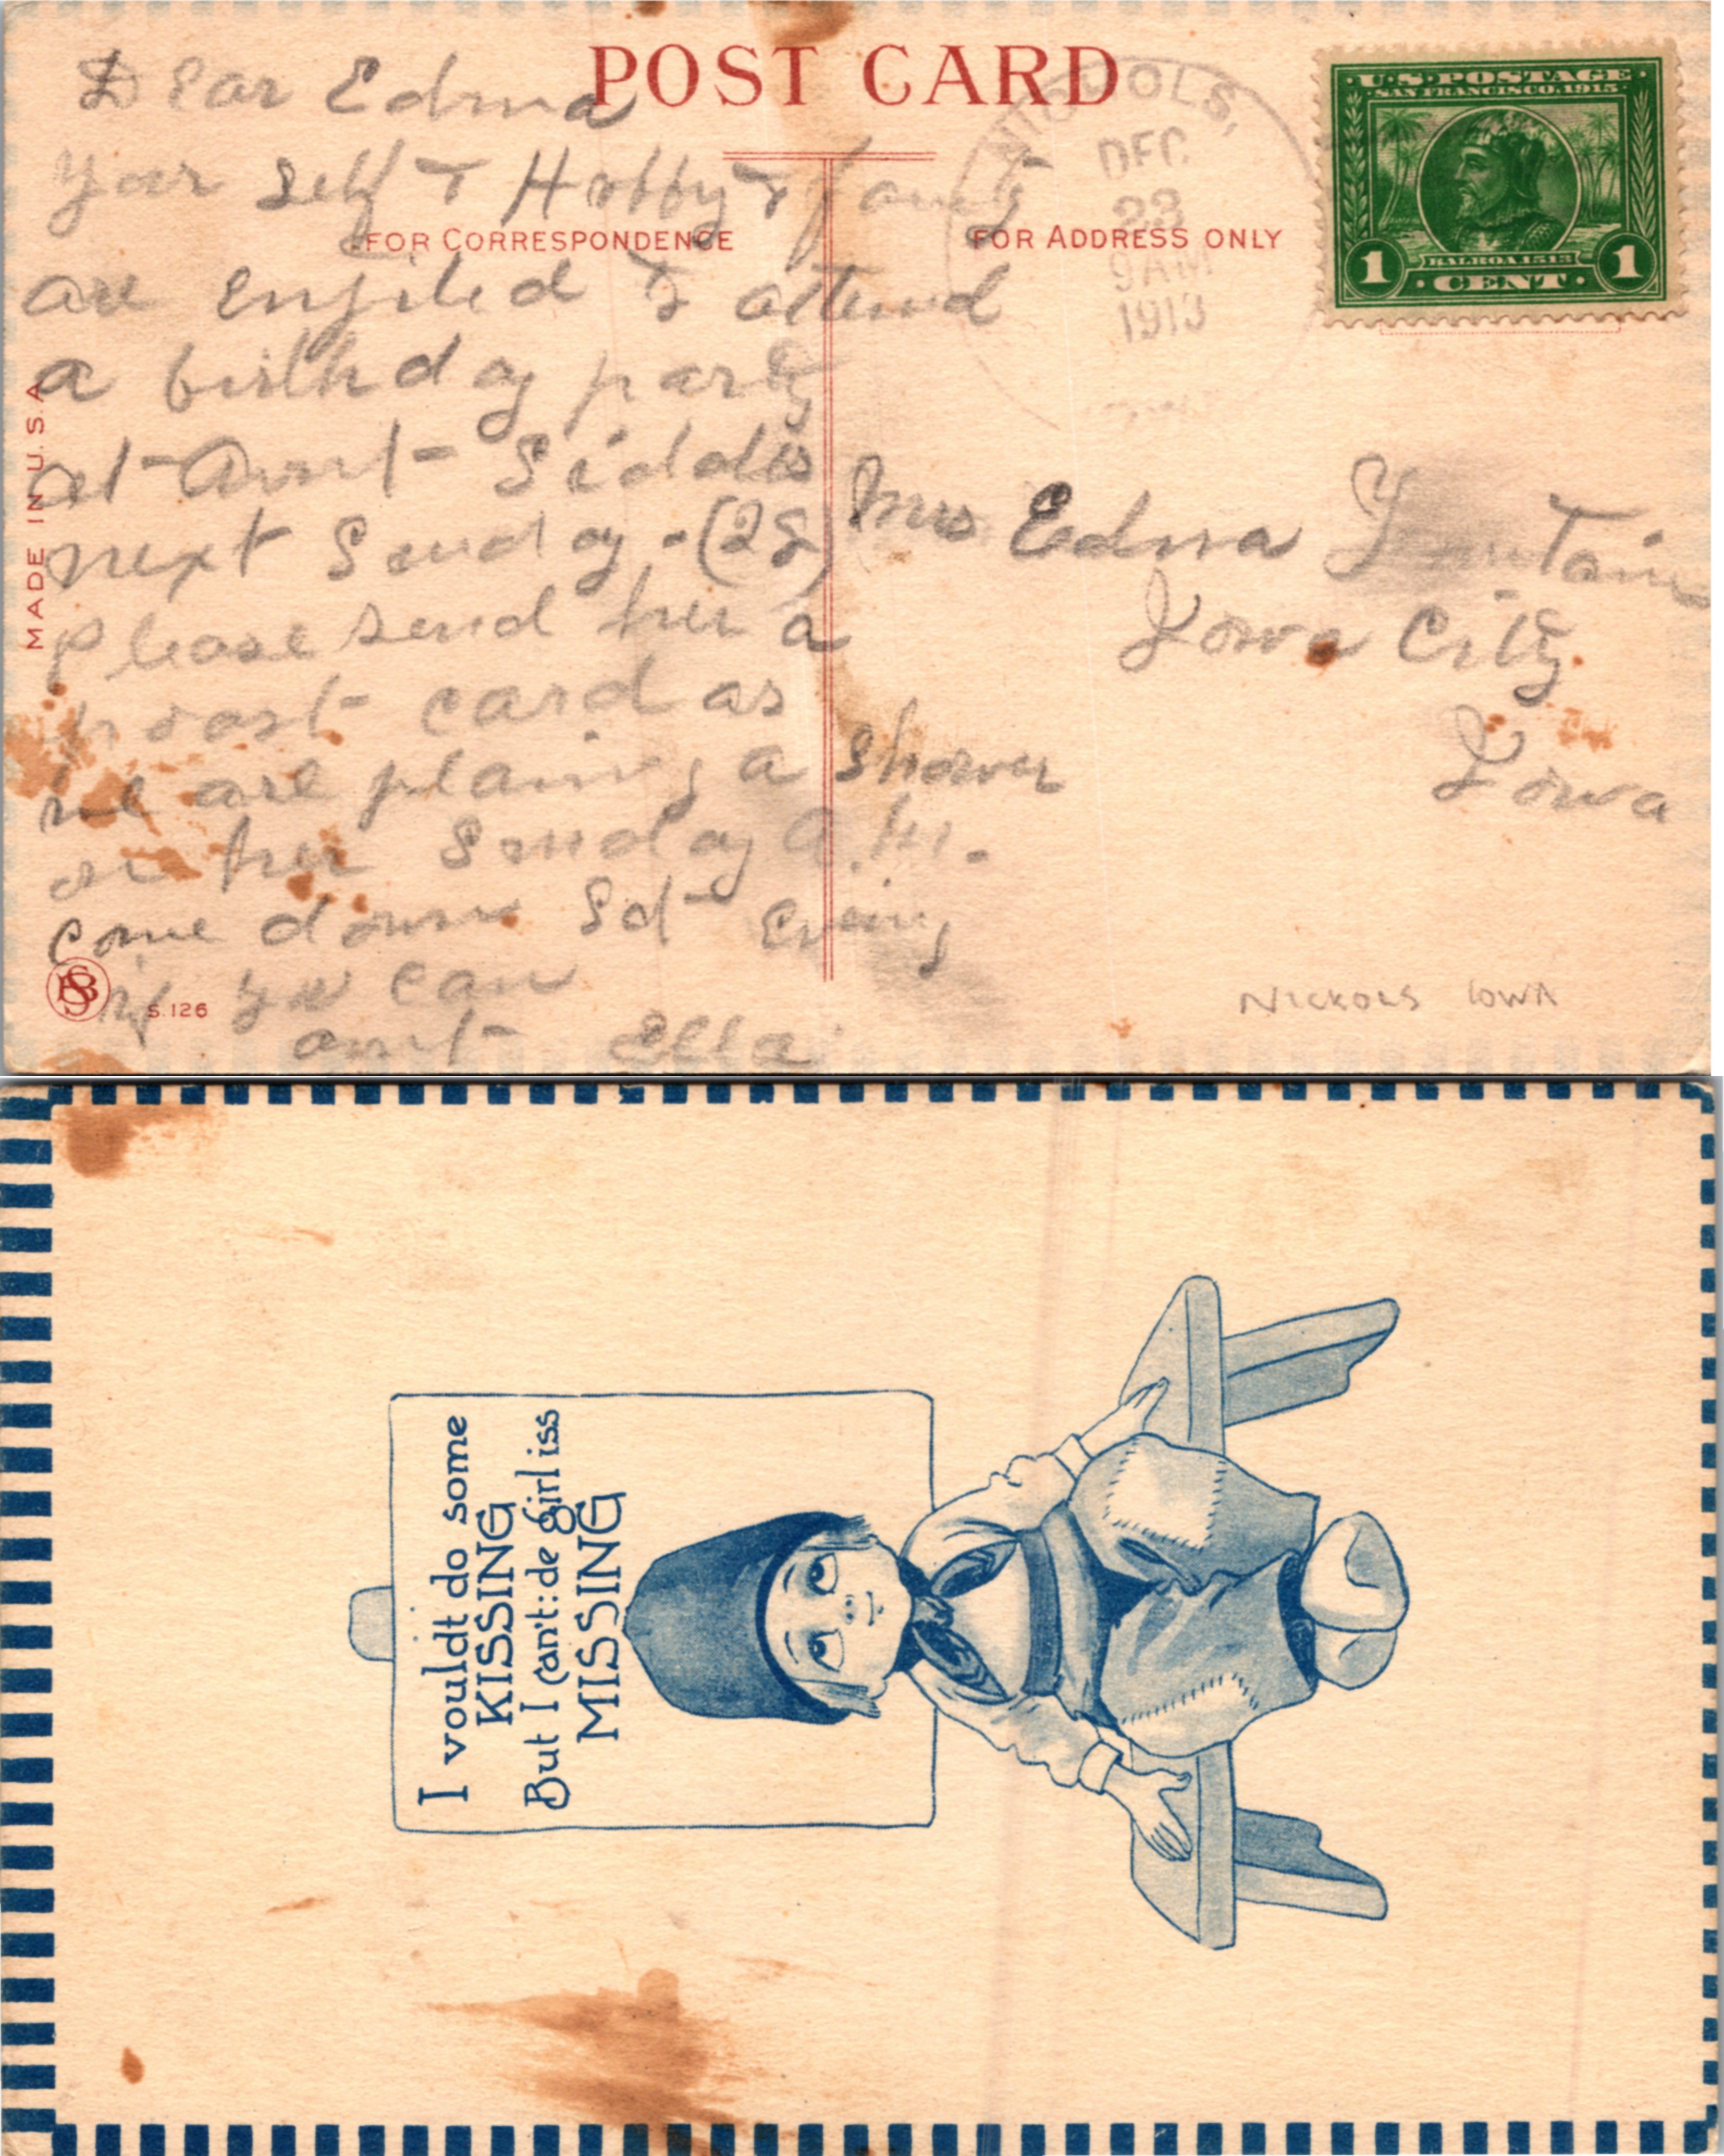 POST CARD
FOR CORRESPONDENCE
FOR ADDRESS ONLY
MADE IN U.S.A
NICHOLS,
DEC
23
9 AM
1913
U.S. POSTAGE
SAN FRANCISCO, 1915
BALBOA 1513
1 CENT 1
Dear Edna
Your Self & Hobby &
are enfited to attend
a birthday party
at Aunt
next Sunday. (28)
please send her a
poast card as
we are planing a shower
on her Sunday A.M.
come down Sat Evening
if you can
aunt Ella
Mrs Edna
Iowa City
Iowa
NICKOLS IOWA
S.126
I vouldt do some
KISSING
But I can't: de girl iss
MISSING